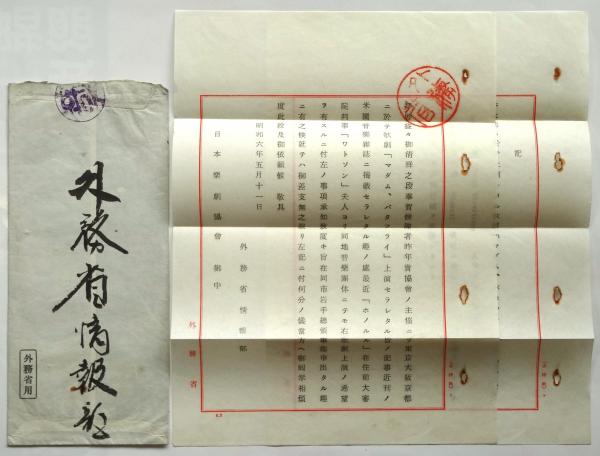 外務省情報部
外務省用
記
拝啓益々御清祥之段奉賀候陳者昨年貴協會ノ主催ニテ東京大阪京都
ニ於テ歌劇「マダム、バタフライ」上演セラレタル旨ノ記事近刊ノ
米國音樂雑誌ニ掲載セラレタル趣ノ處最近「ホノルル」在住前大審
院判事「ワトソン」夫人ヨリ同地音樂團体ニテモ右歌劇上演ノ希望
ヲ有スルニ付左ノ事項承知致度キ旨在同市岩手總領事ニ申出タル趣
ニ有之候就テハ御差支無之限リ左記ニ付何分ノ儀當方ヘ御回示相煩
度此段及御依頼候 敬具
昭和六年五月十一日
外務省情報部
日本樂劇協會 御中
外務省